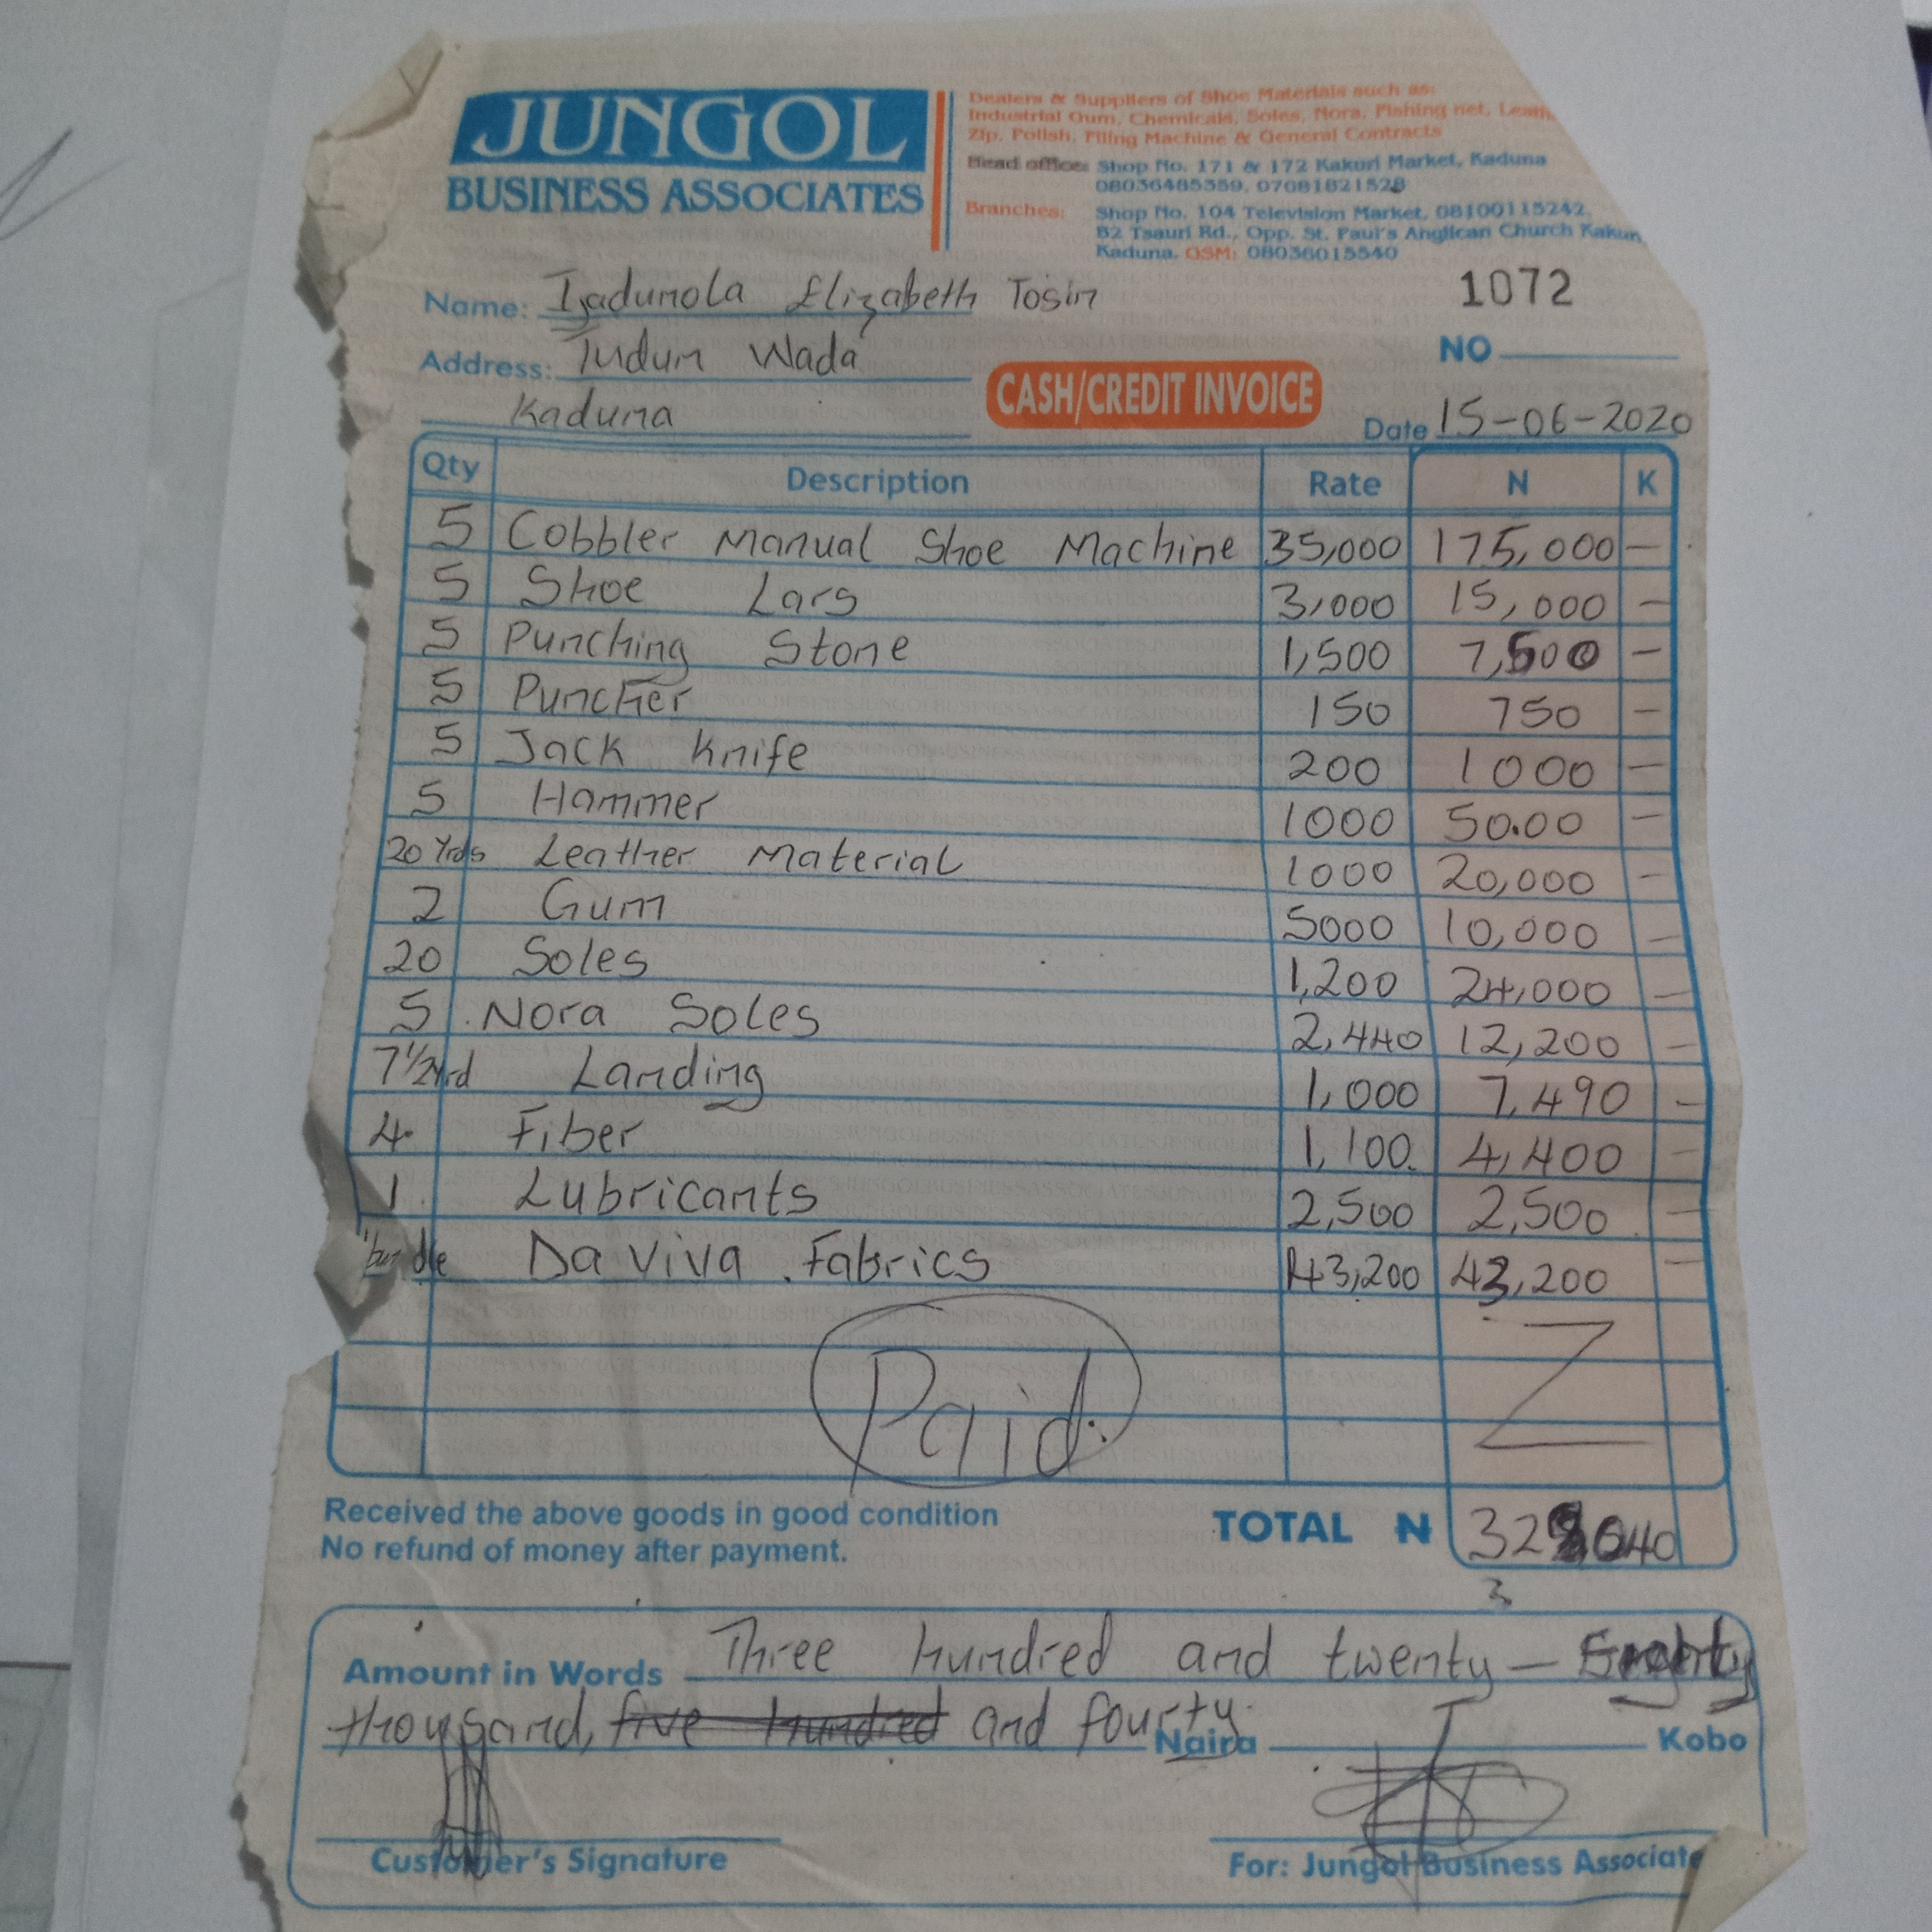 JUNGOL
BUSINESS ASSOCIATES
Dealers & Suppliers of Shoe Materials such as:
Industrial Gum, Chemicals, Soles, Nora, Fishing net, Leath
Zip, Polish, Filing Machine & General Contracts
Head office: Shop No. 171 & 172 Kakuri Market, Kaduna
08036485359, 07081821528
Branches: Shop No. 104 Television Market, 08100115242,
B2 Tsauri Rd., Opp. St. Paul's Anglican Church Kakuri,
Kaduna. GSM: 08036015540
Name: Ijadunola Elizabeth Tosin
1072
NO
Address: Tudun Wada
Kaduna
CASH/CREDIT INVOICE
Date 15-06-2020
Qty Description Rate N K
5 Cobbler Manual Shoe Machine 35,000 175,000 -
5 Shoe Lars 3,000 15,000 -
5 Punching Stone 1,500 7,500 -
5 Puncher 150 750 -
5 Jack Knife 200 1000 -
5 Hammer 1000 50.00 -
20 Yrds Leather Material 1000 20,000 -
2 Gum 5000 10,000 -
20 Soles 1,200 24,000 -
5 Nora Soles 2,440 12,200 -
7½yrd Landing 1,000 7,490 -
4 Fiber 1,100 4,400 -
1 Lubricants 2,500 2,500 -
1 bundle Da Viva Fabrics 43,200 43,200 -
Paid
Received the above goods in good condition
No refund of money after payment.
TOTAL N
3
Amount in Words Three hundred and twenty-
thousand, five hundred and fourty Naira Kobo
Customer's Signature
For: Jungol Business Associate